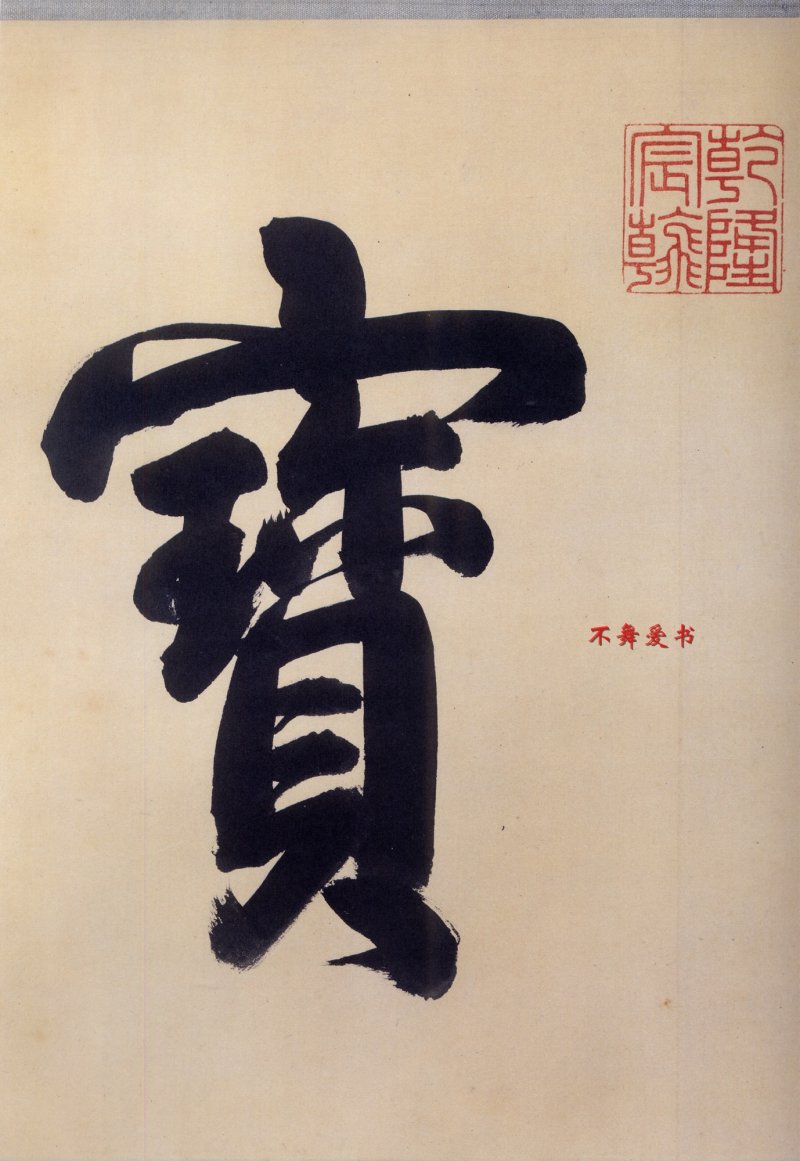 乾隆
宸翰
寶
不舞爱书